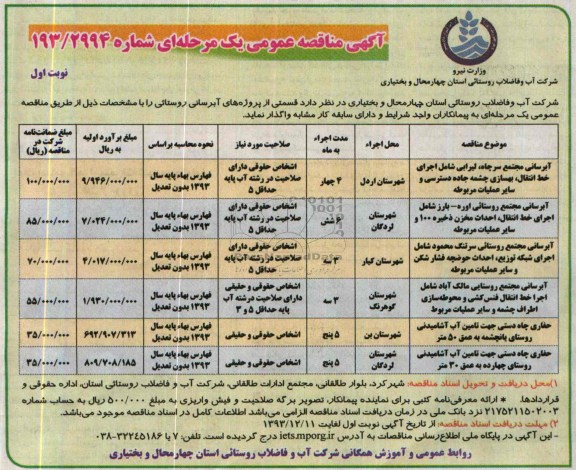 آگهی مناقصه عمومی یک مرحله‌ای شماره ۱۹۳/۲۹۹۴
نوبت اول
وزارت نیرو
شرکت آب وفاضلاب روستائی استان چهارمحال و بختیاری
شرکت آب وفاضلاب روستائی استان چهارمحال و بختیاری در نظر دارد قسمتی از پروژه‌های آبرسانی روستائی را با مشخصات ذیل از طریق مناقصه
عمومی یک مرحله‌ای به پیمانکاران واجد شرایط و دارای سابقه کار مشابه واگذار نماید.
موضوع مناقصه | محل اجراء | مدت اجراء به ماه | صلاحیت مورد نیاز | نحوه محاسبه براساس | مبلغ برآورد اولیه به ریال | مبلغ ضمانتنامه شرکت در مناقصه (ریال)
آبرسانی مجتمع سرچاه، لیرابی شامل اجرای خط انتقال، بهسازی چشمه جاده دسترسی و سایر عملیات مربوطه | شهرستان اردل | ۴ چهار | اشخاص حقوقی دارای صلاحیت در رشته آب پایه حداقل ۵ | فهارس بهاء پایه سال ۱۳۹۳ بدون تعدیل | ۹/۹۴۶/۰۰۰/۰۰۰ | ۱۰۰/۰۰۰/۰۰۰
آبرسانی مجتمع روستائی اوره–بارز شامل اجرای خط انتقال، احداث مخزن ذخیره ۱۰۰ و سایر عملیات مربوطه | شهرستان لردگان | ۶ شش | اشخاص حقوقی دارای صلاحیت در رشته آب پایه حداقل ۵ | فهارس بهاء پایه سال ۱۳۹۳ بدون تعدیل | ۷/۰۳۴/۰۰۰/۰۰۰ | ۸۵/۰۰۰/۰۰۰
آبرسانی مجتمع روستائی سرتنگ محمود شامل اجرای شبکه توزیع، احداث حوضچه فشار شکن و سایر عملیات مربوطه | شهرستان کیار | ۳ سه | اشخاص حقوقی دارای صلاحیت در رشته آب پایه حداقل ۵ | فهارس بهاء پایه سال ۱۳۹۳ بدون تعدیل | ۴/۰۱۷/۰۰۰/۰۰۰ | ۷۰/۰۰۰/۰۰۰
آبرسانی مجتمع روستایی مالک آباد شامل اجرا خط انتقال فنس‌کشی و محوطه‌سازی اطراف چشمه و سایر عملیات مربوط | شهرستان کوهرنگ | ۳ سه | اشخاص حقوقی و حقیقی دارای صلاحیت درشته آب پایه حداقل ۵ و ۳ | فهارس بهاء پایه سال ۱۳۹۳ بدون تعدیل | ۱/۹۳۰/۰۰۰/۰۰۰ | ۵۵/۰۰۰/۰۰۰
حفاری چاه دستی جهت تامین آب آشامیدنی روستای پانچشمه به عمق ۵۰ متر | شهرستان بن | ۵ پنج | اشخاص حقوقی و حقیقی | فهارس بهاء پایه سال ۱۳۹۳ بدون تعدیل | ۶۹۲/۹۰۷/۳۱۳ | ۳۵/۰۰۰/۰۰۰
حفاری چاه دستی جهت تامین آب آشامیدنی روستای چهارده به عمق ۳۰ متر | شهرستان لردگان | ۵ پنج | اشخاص حقوقی و حقیقی | فهارس بهاء پایه سال ۱۳۹۳ بدون تعدیل | ۸۰۹/۷۰۸/۱۸۵ | ۳۵/۰۰۰/۰۰۰
۱)محل دریافت و تحویل اسناد مناقصه: شهرکرد، بلوار طالقانی، مجتمع ادارات طالقانی، شرکت آب و فاضلاب روستائی استان، اداره حقوقی و
قراردادها. * ارائه معرفی‌نامه کتبی برای نماینده پیمانکار، تصویر برگه صلاحیت و فیش واریزی به مبلغ ۵۰۰/۰۰۰ ریال به حساب شماره
۲۱۷۵۲۱۱۵۰۲۰۰۳ نزد بانک ملی در زمان دریافت اسناد مناقصه الزامی می‌باشد اطلاعات کامل در اسناد مناقصه موجود می‌باشد.
۲) مهلت دریافت اسناد مناقصه: از تاریخ آگهی نوبت اول لغایت ۱۳۹۳/۱۲/۱۱
- این آگهی در پایگاه ملی اطلاع‌رسانی مناقصات به آدرس iets.mporg.ir درج گردیده است. تلفن: ۷ یا ۳۲۲۴۵۱۸۶-۰۳۸
روابط عمومی و آموزش همگانی شرکت آب و فاضلاب روستائی استان چهارمحال و بختیاری